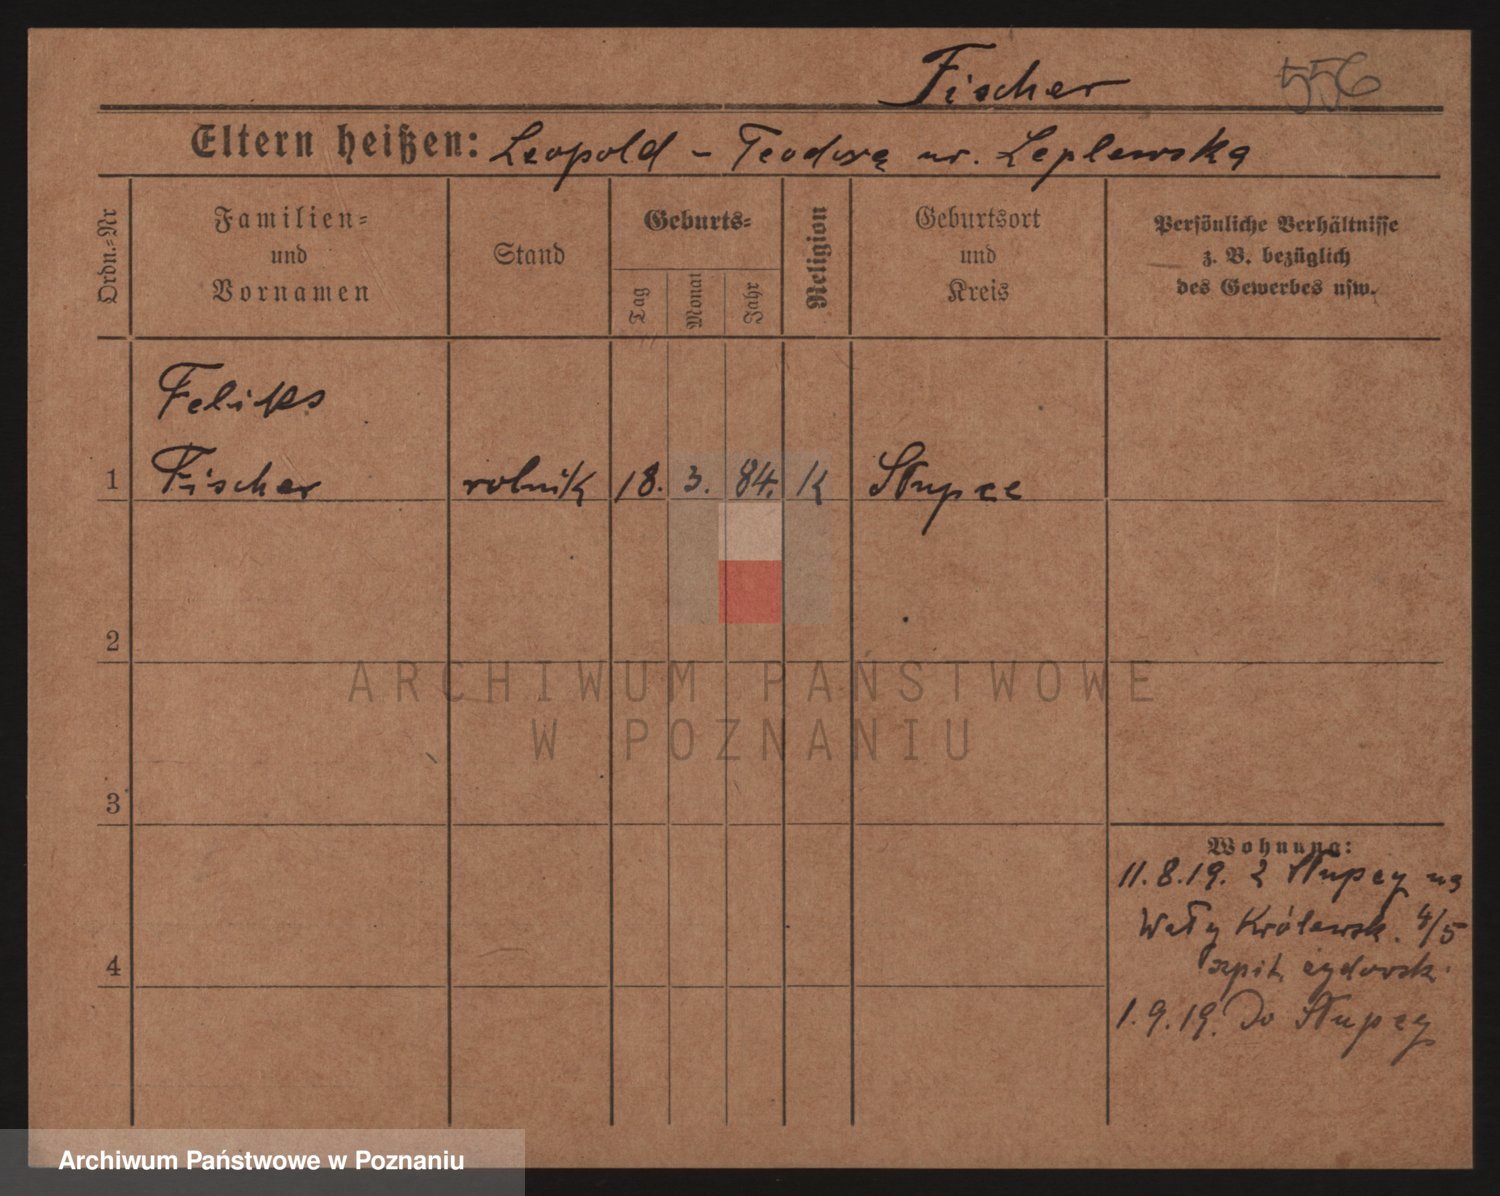 Fischer 556
Eltern heißen: Leopold - Teodora ur. Leplewska
Ordn.-Nr
Familien-
und
Vornamen
Stand
Geburts-
Tag
Monat
Jahr
Religion
Geburtsort
und
Kreis
Persönliche Verhältnisse
z. B. bezüglich
des Gewerbes usw.
Feliks
1 Fischer rolnik 18. 3. 84. K Słupce
2
ARCHIWUM PAŃSTWOWE
W POZNANIU
3
Wohnung:
11.8.19. z Słupcy na
Wały Królewsk. 4/5
4
szpit. żydowsk.
1.9.19. Do Słupcy
Archiwum Państwowe w Poznaniu